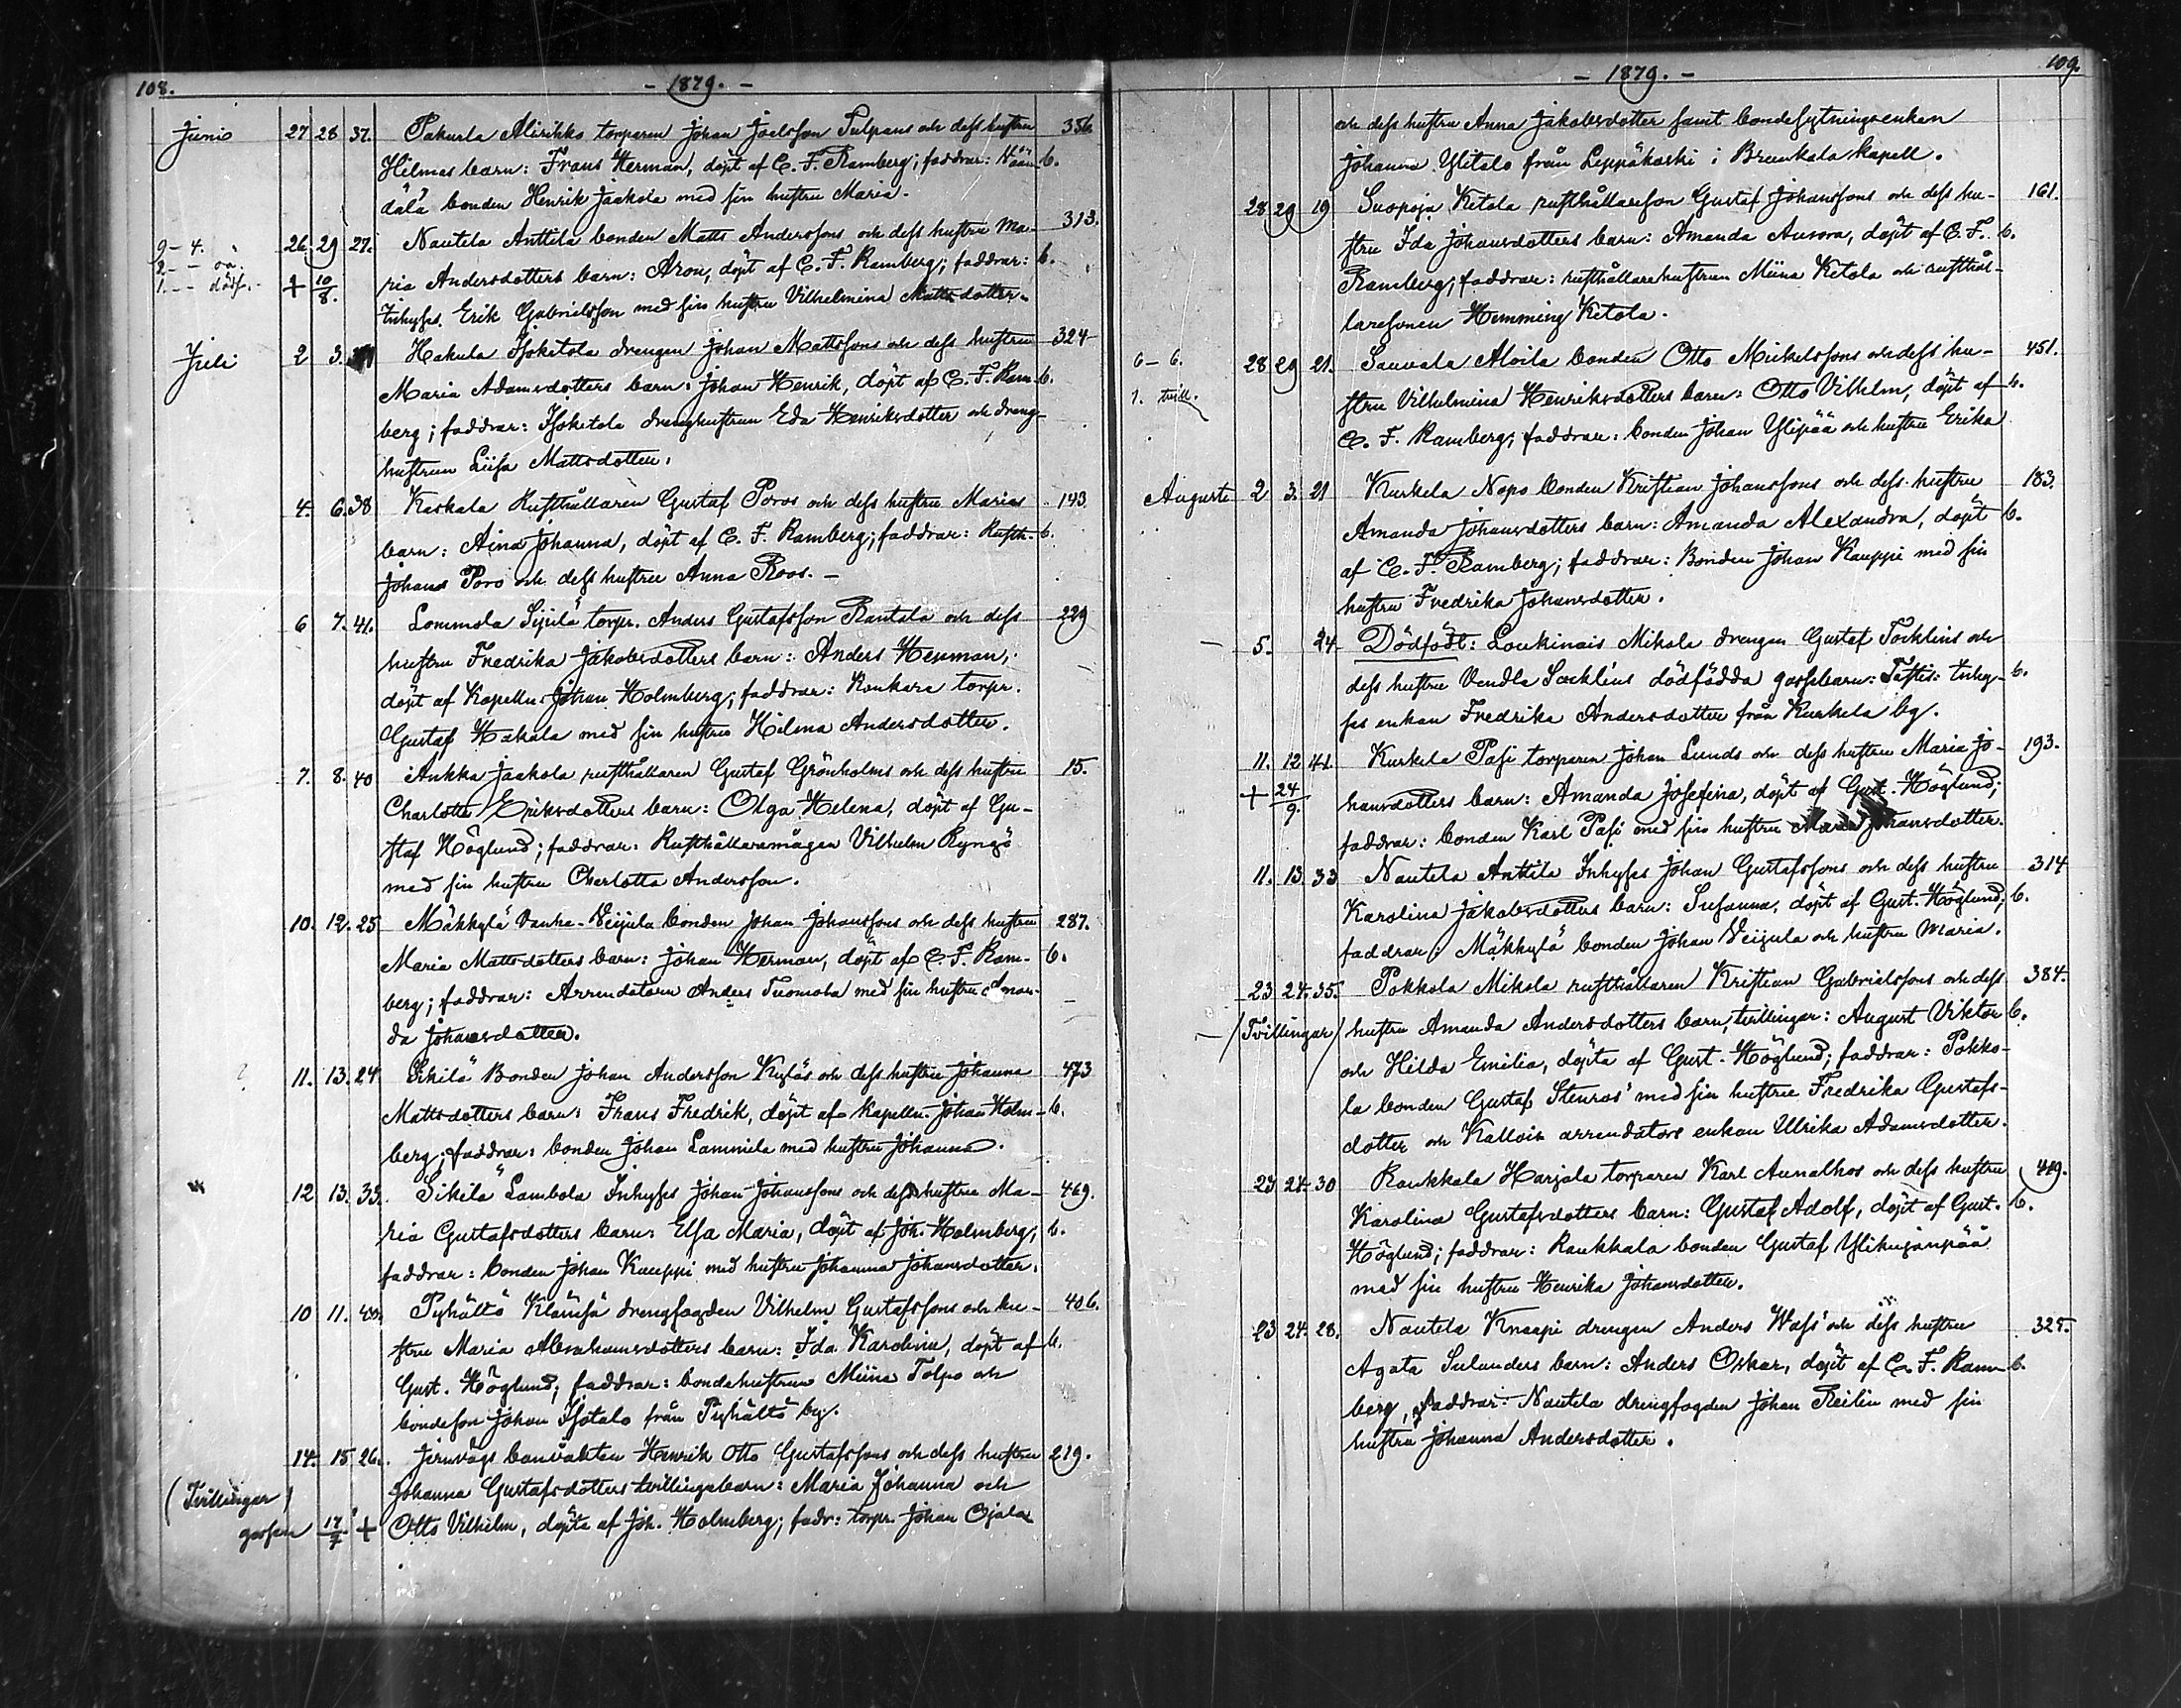 108.
- 1879. -
Junio 27 28 37. Pakurla Alirikko torparen Johan Joelsson Tulpans och dess hustru 356.
Hilmas barn: Frans Herman, döpt af C. F. Ramberg; faddrar: Wään- b.
dälä bonden Henrik Jaakola med sin hustru Maria.
9 - 4. 26. 29 27. Nautela Anttila bonden Matts Anderssons och dess hustru Ma- 313.
2. - - oä.
1. - - dödf. + 10/8. ria Andersdotters barn: Aron, döpt af C. F. Ramberg; faddrar: b.
Inhyses Erik Gabrielsson med sin hustru Vilhelmina Mattsdotter.
Juli 2 3. Hakula Isoketola drengen Johan Mattssons och dess hustru 324
Maria Adamsdotters barn: Johan Henrik, döpt af C. F. Ram- b.
berg; faddrar: Isoketola drenghustrun Eda Henriksdotter och dreng-
hustrun Liisa Mattsdotter.
4. 6. 38 Kaskala Rusthållaren Gustaf Poros och dess hustru Marias 143
barn: Aina Johanna, döpt af C. F. Ramberg; faddrar: Rusth. b.
Johans Poro och dess hustru Anna Roos. -
6 7. 41. Lommola Sipilä torpr. Anders Gustafsson Rantala och dess 229
hustru Fredrika Jakobsdotters barn: Anders Herman,
döpt af Kapelln. Johan Holmberg; faddrar: Konkare torpr.
Gustaf Hakala med sin hustru Hilma Andersdotter.
7. 8. 40 Ankka Jaakola rusthållaren Gustaf Grönholms och dess hustru 15.
Charlotta Eriksdotters barn: Olga Helena, döpt af Gu-
staf Höglund; faddrar: Rusthållaremågen Vilhelm Ryngö
med sin hustru Charlotta Andersson.
10. 12. 25 Mäkkylä Vanha-Veijula bonden Johan Johanssons och dess hustru 287.
Maria Mattsdotters barn: Johan Herman, döpt af C. F. Ram- b.
berg; faddrar: Arrendatorn Anders Tuomola med sin hustru Aman-
da Johansdotter.
11. 13. 24 Sikilä Bonden Johan Andersson Kyläs och dess hustru Johanna 473
Mattsdotters barn: Frans Fredrik, döpt af Kapelln. Johan Holm- b.
berg; faddrar: bonden Johan Lammila med hustru Johanna.
12 13. 33. Sikilä Lambola Inhyses Johan Johanssons och dess hustru Ma- 469.
ria Gustafsdotters barn: Elsa Maria, döpt af Joh. Holmberg; b.
faddrar: bonden Johan Kauppi med hustru Johanna Johansdotter.
10 11. 40. Pyhältö Klämsä drengfogden Vilhelm Gustafssons och hu- 406.
stru Maria Abrahamsdotters barn: Ida Karolina, döpt af b.
Gust. Höglund; faddrar: bondehustrun Miina Tolpo och
bondeson Johan Isotalo från Pyhältö by.
14. 15 26. Jernvägs banvakten Henrik Otto Gustafssons och dess hustru 219.
(Tvillingar) Johanna Gustafsdotters tvillingabarn: Maria Johanna och
gossen 17/7 + Otto Vilhelm, döpta af Joh. Holmberg; fadr: torpr. Johan Ojala
- 1879. -
109.
och dess hustru Anna Jakobsdotter samt bondesytningsenkan
Johanna Ylitalo från Leppäkoski i Brunkala kapell.
28 29 19 Suopoja Ketola rusthållareson Gustaf Johanssons och dess hu- 161.
stru Ida Johansdotters barn: Amanda Aurora, döpt af C. F. b.
Ramberg; faddrar: rusthållarehustrun Miina Ketola och rusthål-
laresonen Hemming Ketola.
6 - 6. 28 29 21. Sauvala Aloila bonden Otto Mickelssons och dess hu- 451.
1. tvill. stru Vilhelmina Henriksdotters barn: Otto Vilhelm, döpt af b.
C. F. Ramberg; faddrar: bonden Johan Ylipää och hustru Erika
Augusti 2 3. 21 Kurkela Nopo bonden Kristian Johanssons och dess hustru 183.
Amanda Johansdotters barn: Amanda Alexandra, döpt b.
af C. F. Ramberg; faddrar: Bonden Johan Kauppi med sin
hustru Fredrika Johansdotter.
5. 24 Dödfödt: Loukinais Mikola drengen Gustaf Tocklins och
dess hustru Vendla Socklins dödfödda gossebarn: Testis: Inhy- b.
ses enkan Fredrika Andersdotter från Kurkela by.
11. 12 41. Kurkela Pasi torparen Johan Lunds och dess hustru Maria Jo- 193.
+ 24/9. hansdotters barn: Amanda Josefina, döpt af Gust. Höglund;
faddrar: bonden Karl Pasi med sin hustru Maria Johansdotter.
11. 13. 33 Nautela Anttila Inhyses Johan Gustafssons och dess hustru 314
Karolina Jakobsdotters barn: Susanna, döpt af Gust. Höglund; b.
faddrar: Mäkkylä bonden Johan Veijula och hustru Maria.
23 24. 35. Pokkola Mikola rusthållaren Kristian Gabrielssons och dess 384.
(Tvillingar) hustru Amanda Andersdotters barn, tvillingar: August Viktor b.
och Hilda Emilia, döpta af Gust. Höglund; faddrar: Pokko-
la bonden Gustaf Stenros' med sin hustru Fredrika Gustafs-
dotter och Kallois arrendators enkan Ulrika Adamsdotter.
23 24. 30 Raukkala Harjala torparen Karl Aunalhos och dess hustru 419.
Karolina Gustafsdotters barn: Gustaf Adolf, döpt af Gust. b.
Höglund; faddrar: Raukkala bonden Gustaf Ylikujanpää
med sin hustru Henrika Johansdotter.
23 24. 28. Nautela Knaapi drengen Anders Wass' och dess hustru 325.
Agata Sulanders barn: Anders Oskar, döpt af C. F. Ram- b.
berg, faddrar: Nautela drengfogden Johan Reilin med sin
hustru Johanna Andersdotter.